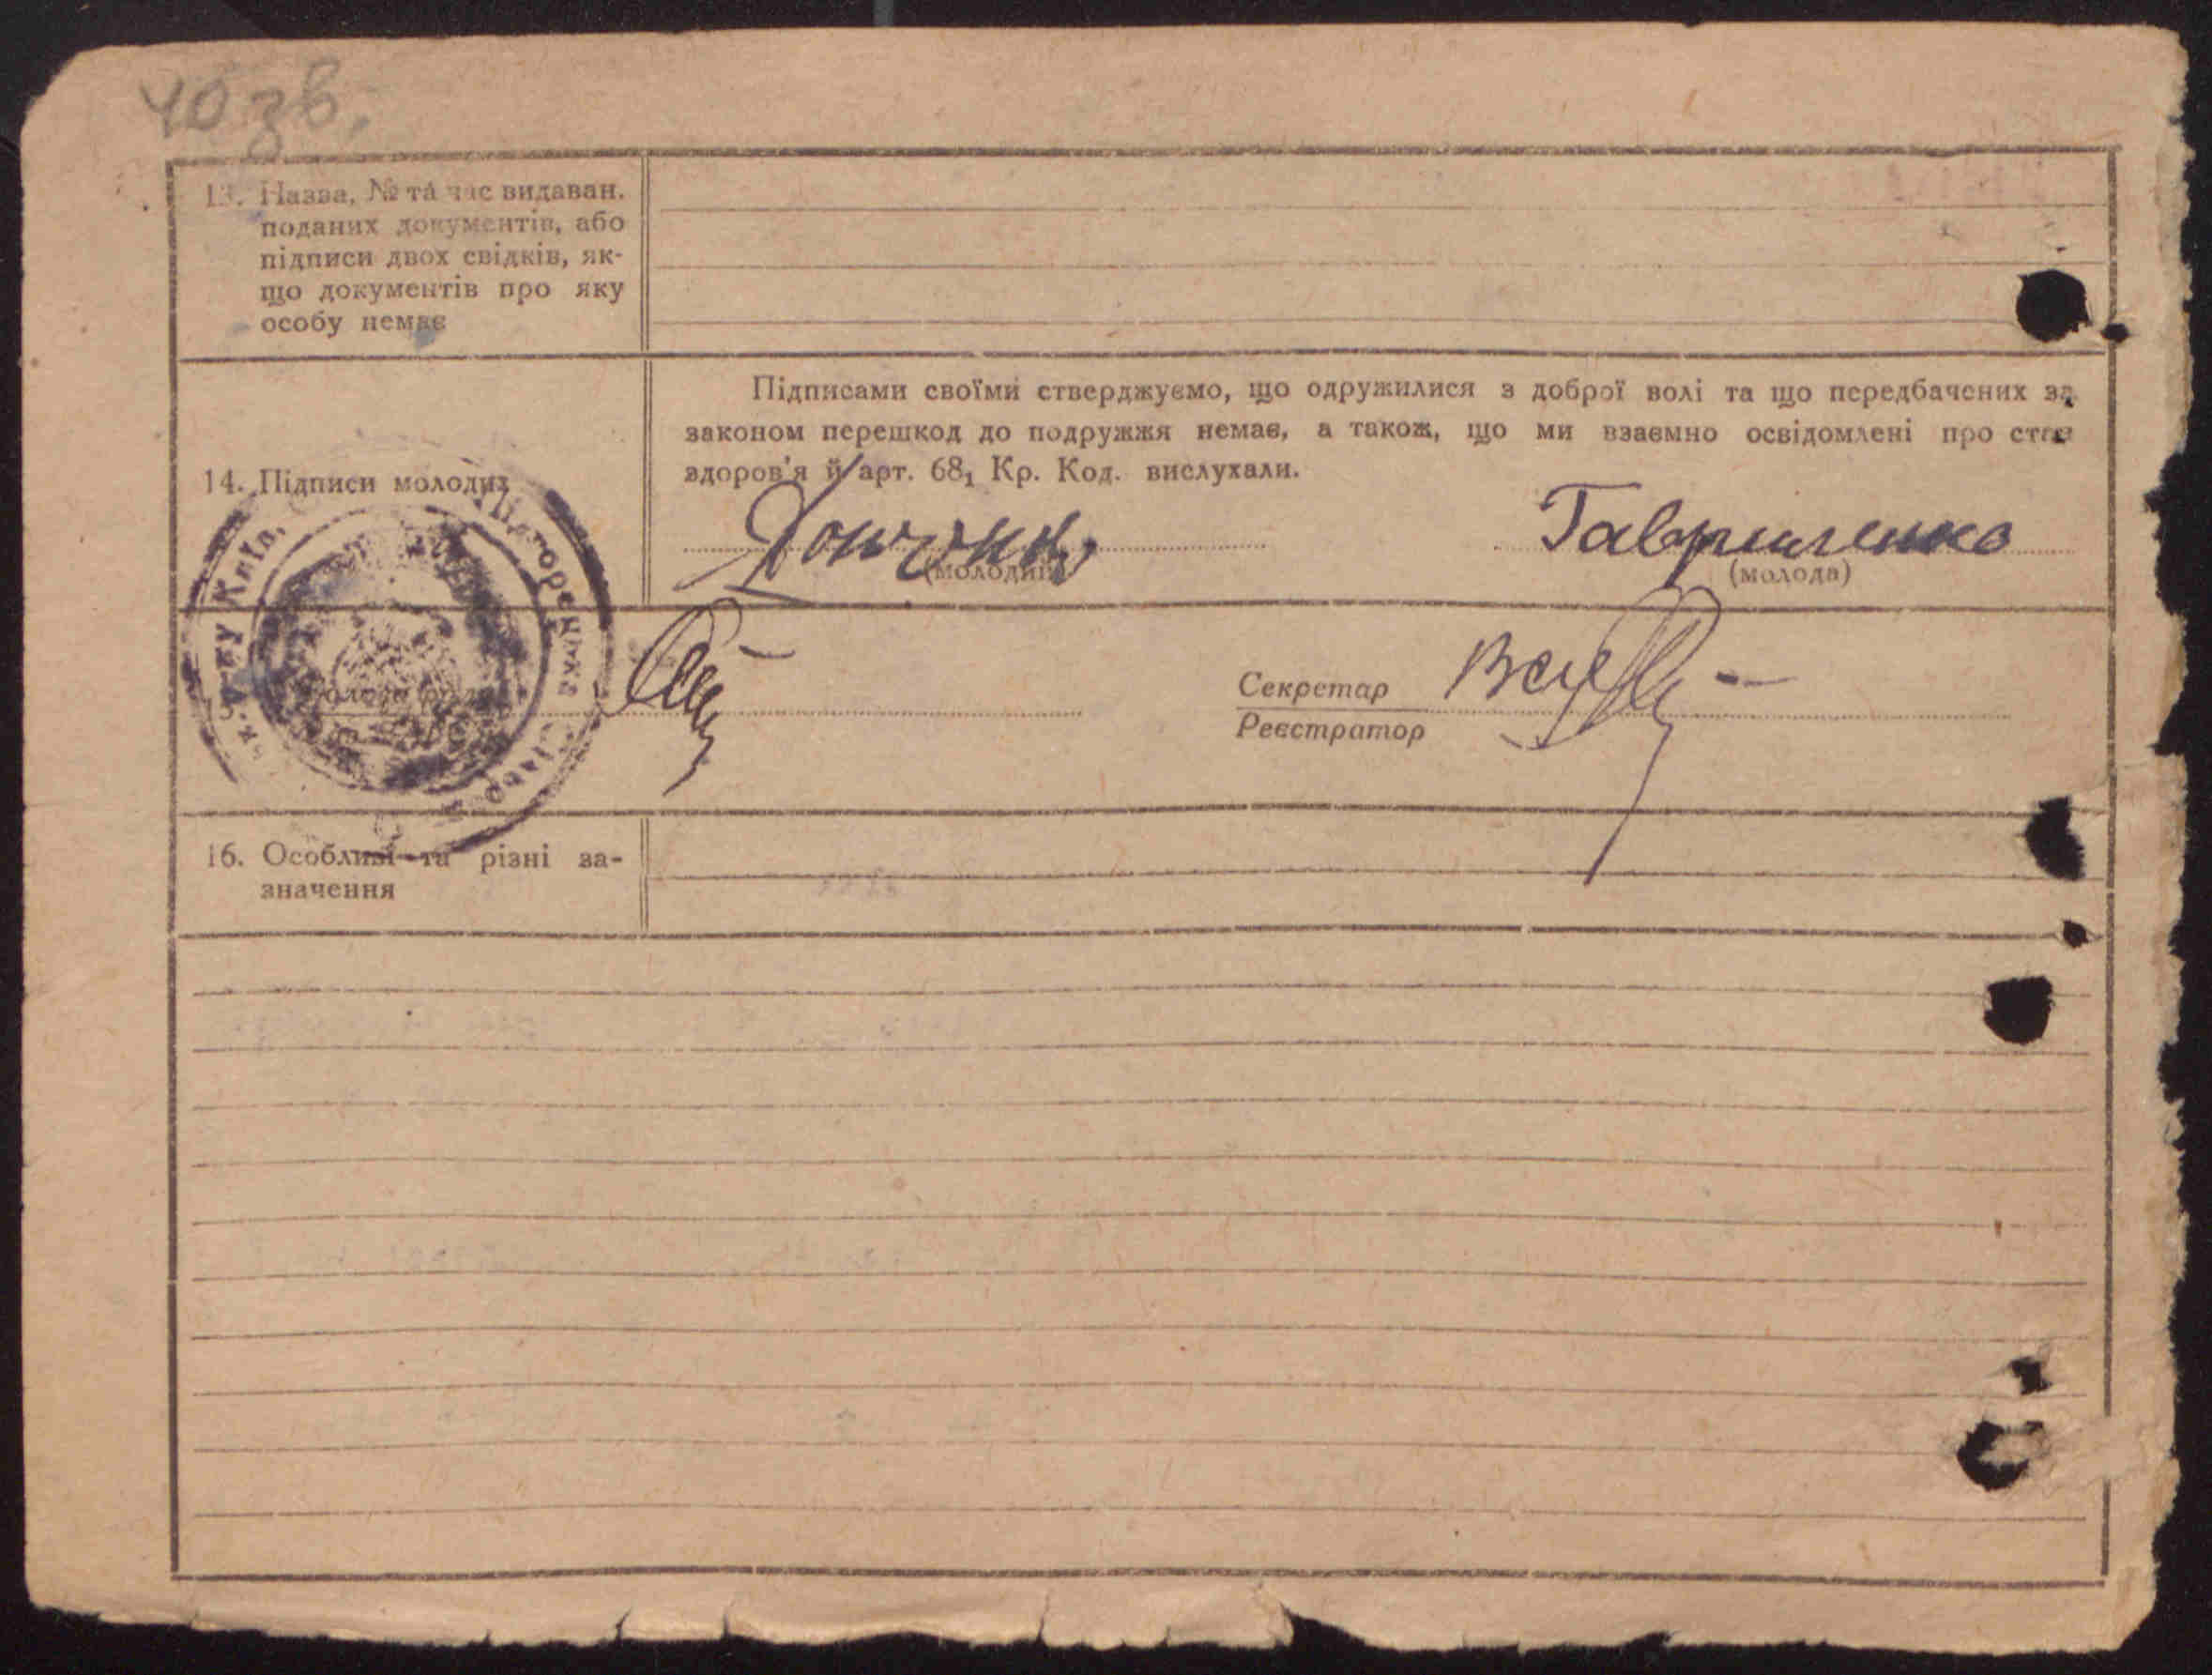 40 зв.
13. Назва, № та час видаван.
поданих документів, або
підписи двох свідків, як-
що документів про яку
особу немає
Підписами своїми стверджуємо, що одружилися з доброї волі та що передбачених за
законом перешкод до подружжя немає, а також, що ми взаємно освідомлені про стан
здоров'я й арт. 68₁ Кр. Код. вислухали.
14. Підписи молодих
Гавриленко
(молодий)
(молода)
Київ
Секретар
Реєстратор
16. Особливі та різні за-
значення